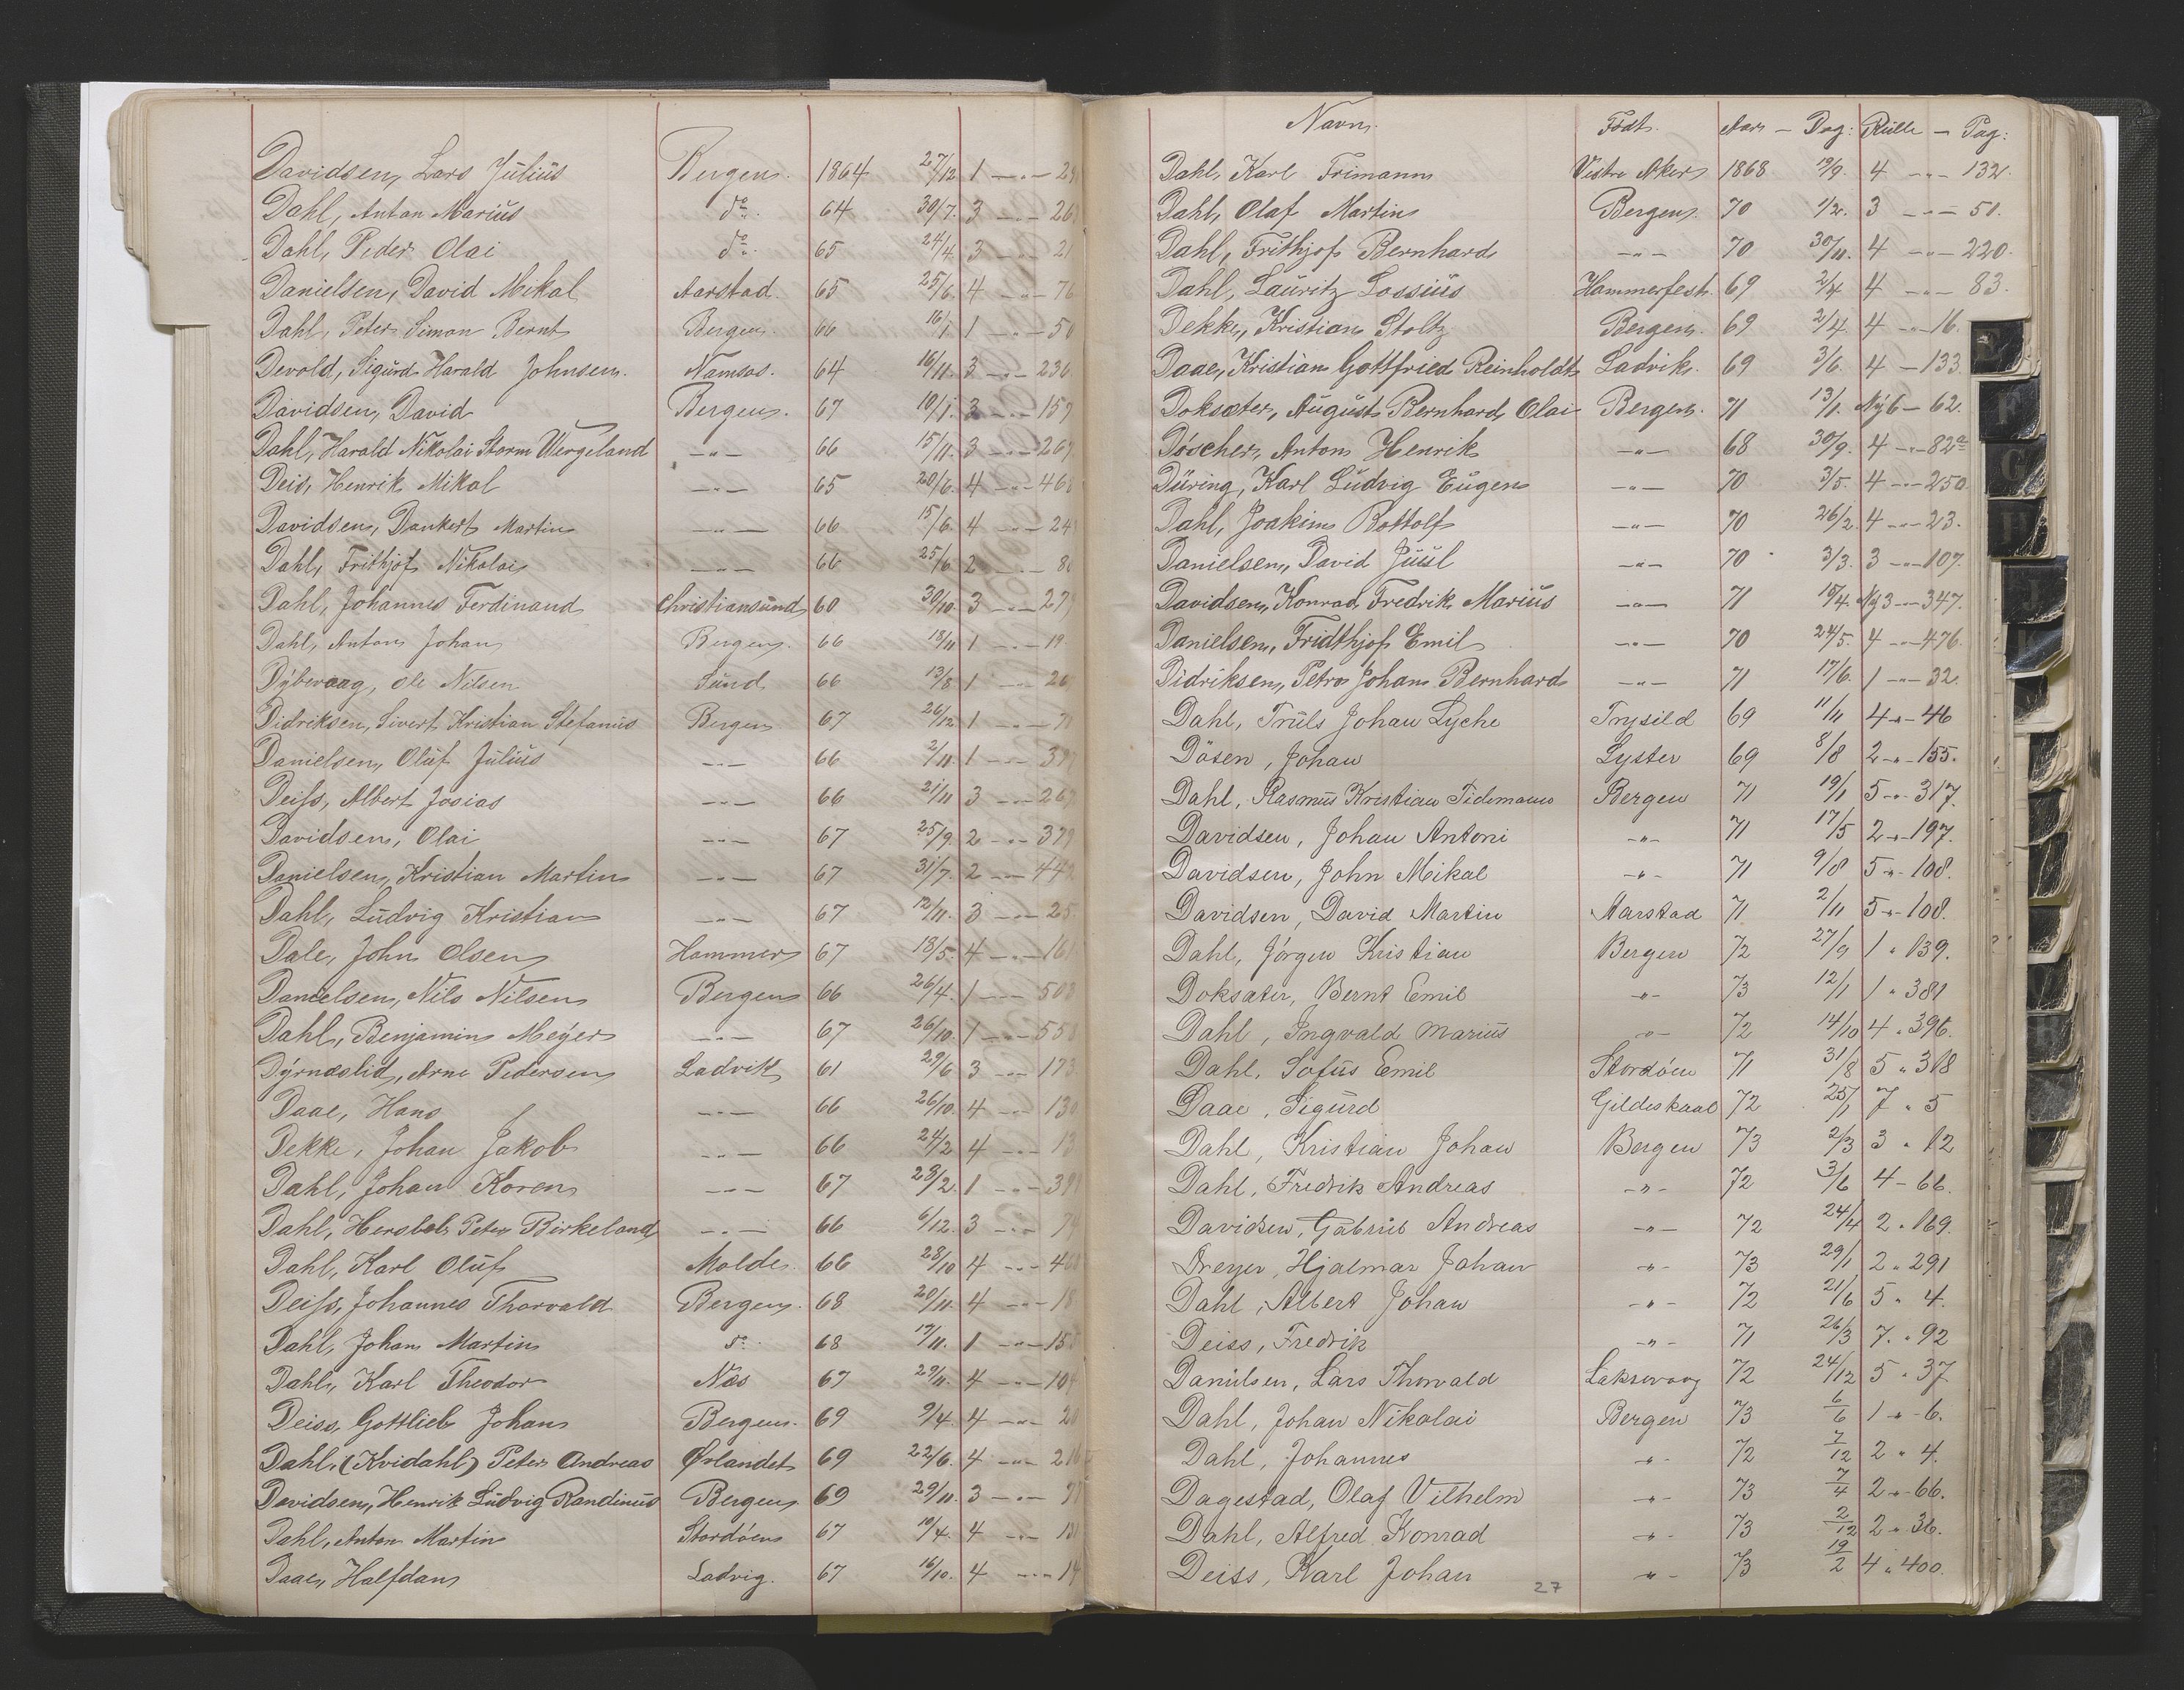 Davidsen, Lars Julius Bergen. 1864 27/12 1 —"—
Dahl, Anton Marius do. 64 30/7. 3 —"— 26
Dahl, Peder Olai do. 65 24/4. 3 —"— 21
Danielsen, David Mikal Aarstad 65 25/6. 4 —"— 76
Dahl, Peter Simon Bernt Bergen. 66 16/1 1 —"— 50
Devold, Sigurd Harald Johnsen. Namsos. 64 16/11. 3 —"— 230
Davidsen, David Bergen. 67 19/1. 2 —"— 157
Dahl, Harald Nikolai Storm Wergeland —"— 66 15/11. 3 —"— 267
Deis, Henrik Mikal —"— 65 20/6. 4 —"— 46
Davidsen, Dankert Martin —"— 66 15/6. 4 —"— 24
Dahl, Frithjof Nikolai —"— 66 25/6 2 —"— 8
Dahl, Johannes Ferdinand Christiansund 60 30/10. 3 —"— 27
Dahl, Anton Johan Bergen. 66 18/11 1 —"— 19
Dybevaag, Ole Nilsen Sund 66 13/8 1 —"— 26
Didriksen, Sivert Kristian Stefanus Bergen 67 26/12. 1 —"— 7
Danielsen, Oluf Julius —"— 66 2/11. 1 —"— 39
Deiss, Albert Josias —"— 66 21/11 3 —"— 267
Davidsen, Olai —"— 67 25/9. 2 —"— 379
Danielsen, Kristian Martin —"— 67 31/7. 2 —"— 44
Dahl, Ludvig Kristian —"— 67 12/11. 3 —"— 25
Dale, John Olsen Hammer 67 18/5. 4 —"— 16
Danielsen, Nils Nilsen Bergen 66 26/4. 1 —"— 50
Dahl, Benjamin Meyer —"— 67 26/10. 1 —"— 55
Dyrnæslid, Arne Pedersen Ladvik 61 29/6 3 —"— 173
Daae, Hans —"— 66 26/10. 4 —"— 130
Dekke, Johan Jakob —"— 66 24/2 4 —"— 13
Dahl, Johan Koren —"— 67 28/2. 1 —"— 39
Dahl, Hersleb Peter Birkeland —"— 66 6/12. 3 —"— 74
Dahl, Karl Oluf Molde. 66 28/10 4 —"— 46
Deiss, Johannes Thorvald Bergen. 68 20/11. 4 —"— 18
Dahl, Johan Martin do. 68 17/11. 1 —"— 15
Dahl, Karl Theodor Næs 67 29/11. 4 —"— 10
Deiss, Gottlieb Johan Bergen. 69 9/4. 4 —"— 20
Dahl, (Kvidahl) Peter Andreas Ørlandet 69 22/6. 4 —"— 216
Davidsen, Henrik Ludvig Randinus Bergen 69 29/11. 3 —"—
Dahl, Anton Martin Stordöen 67 10/4. 4 —"— 13
Daae, Halfdan Ladvig. 67 16/10. 4 —"— 14
Navn. Födt. Aar — Dag: Rulle — Pag:
Dahl, Karl Frimann Vestre Aker 1868 19/9. 4 —"— 132.
Dahl, Olaf Martin Bergen. 70 1/2. 3 —"— 51.
Dahl, Frithjof Bernhard —"— 70 30/11. 4 —"— 220.
Dahl, Lauritz Lossius Hammerfest. 69 2/4 4 —"— 83.
Dekke, Kristian Stoltz Bergen. 69 2/4. 4 —"— 16.
Daae, Kristian Gottfried Reinholdt Ladvik. 69 3/6. 4 — 133.
Doksæter, August Bernhard Olai Bergen. 71 13/1. Ny6 — 62.
Döscher, Anton Henrik —"— 68 30/9. 4 —"— 82a
Düring, Karl Ludvig Eugen —"— 70 3/5. 4 —"— 250
Dahl, Joakim Rottolf —"— 70 26/2. 4 —"— 23.
Danielsen, David Juul —"— 70 3/3. 3 —"— 107.
Davidsen, Konrad Fredrik Marius —"— 71 19/4. Ny3 —"— 347.
Danielsen, Fridthjof Emil —"— 70 24/5. 4 —"— 476.
Didriksen, Petro Johan Bernhard —"— 71 17/6. 1 —"— 32.
Dahl, Truls Johan Lyche Trysild 69 11/11 4 -"- 46
Dösen, Johan Lyster 69 8/8 2 -"- 155.
Dahl, Rasmus Kristian Tidemann Bergen 71 19/1 5 -"- 317.
Davidsen, Johan Antoni -"- 71 17/5 2 -"- 197.
Davidsen, John Mikal -"- 71 9/8 5 -"- 108.
Davidsen, David Martin Aarstad 71 2/11 5 -"- 108.
Dahl, Jörgen Kristian Bergen 72 27/9 1 " 139.
Doksæter, Bernt Emil -"- 73 12/1 1 " 381
Dahl, Ingvald Marius -"- 72 14/10 4 " 396.
Dahl, Sofus Emil Stordöen 71 31/8 5 " 318
Daae, Sigurd Gildeskaal 72 25/1 7 " 5
Dahl, Kristian Johan Bergen 73 2/3 3 " 12
Dahl, Fredrik Andreas -"- 72 3/6 4 - 66.
Davidsen, Gabriel Andreas -"- 72 24/4 2 " 169.
Dreyer, Hjalmar Johan -"- 73 29/1 2 " 291
Dahl, Albert Johan -"- 72 21/6 5 " 4.
Deiss, Fredrik -"- 71 26/3 7 " 92
Danielsen, Lars Thorvald Laksevaag 72 24/12 5 " 37
Dahl, Johan Nikolai Bergen 73 6/6 1 -"- 6.
Dahl, Johannes -"- 72 7/12 2 " 4.
Dagestad, Olaf Vilhelm -"- 73 7/4 2 -"- 66.
Dahl, Alfred Konrad -"- 73 2/12 2 -"- 36.
Deiss, Karl Johan -"- 73 19/2 4 " 400.
27
F
G
H
J
K